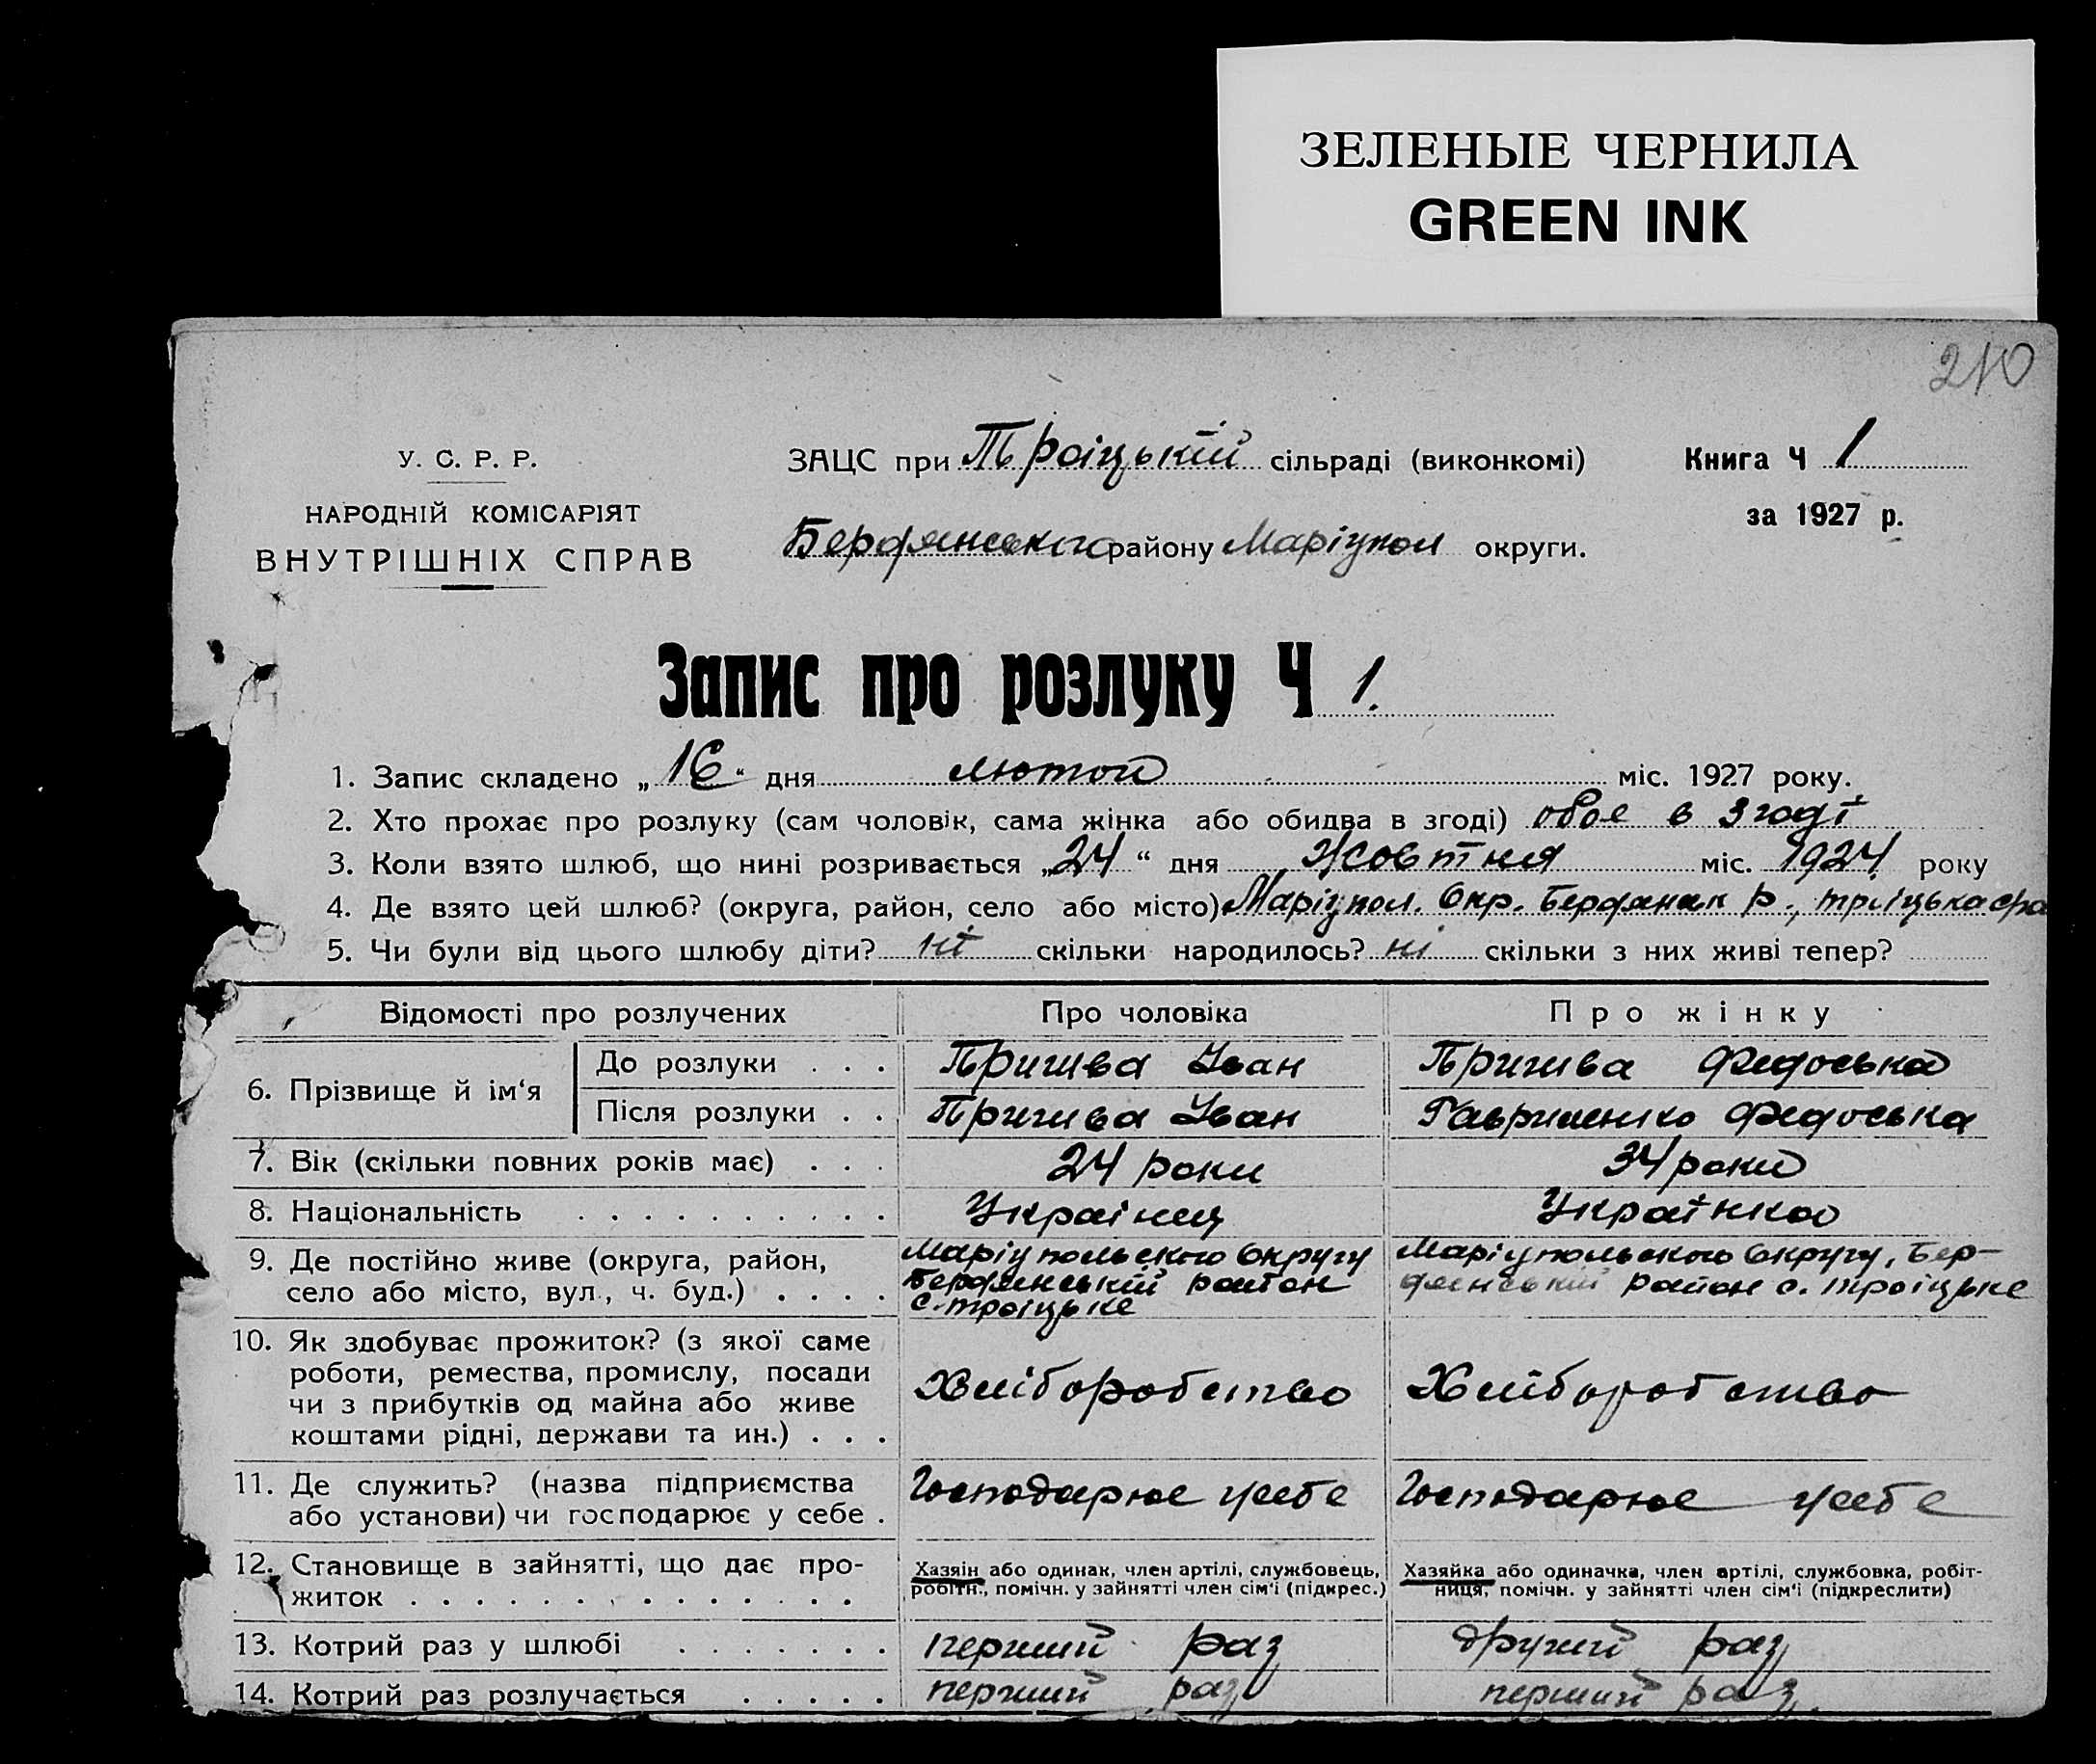 ЗЕЛЕНЫЕ ЧЕРНИЛА
GREEN INK
210
У. С. Р. Р.
НАРОДНІЙ КОМІСАРІЯТ
ВНУТРІШНІХ СПРАВ
ЗАЦС при Троіцькій сільраді (виконкомі)
Бердянського району Маріупол округи.
Книга Ч 1
за 1927 р.
Запис про розлуку Ч 1.
1. Запис складено „16“ дня лютого міс. 1927 року.
2. Хто прохає про розлуку (сам чоловік, сама жінка або обидва в згоді) обоє в згоді
3. Коли взято шлюб, що нині розривається „24“ дня жовтня міс. 1924 року
4. Де взято цей шлюб? (округа, район, село або місто) Маріупол. Окр. Бердянск р.,
5. Чи були від цього шлюбу діти? ні скільки народилось? ні скільки з них живі тепер?
Відомості про розлучених Про чоловіка Про жінку
6. Прізвище й ім‘я До розлуки . . . Пригива Іван Пригива Федоська
Після розлуки . . Пригива Іван Гавриленко Федоська
7. Вік (скільки повних років має) . . . 24 роки 34 роки
8. Національність . . . . . . . . . . Украінец Українка
9. Де постійно живе (округа, район,
село або місто, вул., ч. буд.) . . . .
Маріупольского Округу
Бердянський район
с. Троіцьке
Маріупольского Округу, Бер-
дянський район с. Троіцьке
10. Як здобуває прожиток? (з якої саме
роботи, ремества, промислу, посади
чи з прибутків од майна або живе
коштами рідні, держави та ин.) . . .
Хліборобство Хліборобство
11. Де служить? (назва підприємства
або установи) чи господарює у себе .
Господарює у себе Господарює у себе
12. Становище в зайнятті, що дає про-
житок . . . . . . . . . . . . . .
Хазяїн або одинак, член артілі, службовець,
робітн., помічн. у зайнятті член сім‘ї (підкрес.)
Хазяйка або одиначка, член артілі, службовка, робіт-
ниця, помічн. у зайнятті член сім‘ї (підкреслити)
13. Котрий раз у шлюбі . . . . . . . перший раз другий раз
14. Котрий раз розлучається . . . . . перший раз перший раз.